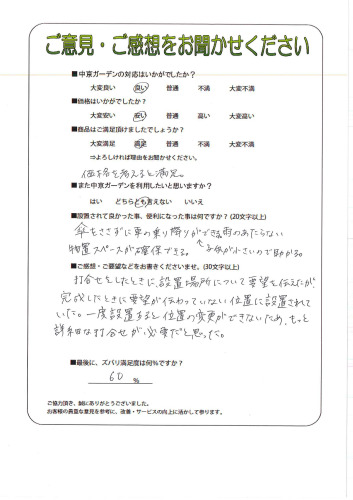 ご意見・ご感想をお聞かせください
■中京ガーデンの対応はいかがでしたか？
大変良い 良い 普通 不満 大変不満
■価格はいかがでしたか？
大変安い 安い 普通 高い 大変高い
■商品はご満足頂けましたでしょうか？
大変満足 満足 普通 不満 大変不満
⇒よろしければ理由をお聞かせください。
価格を考えると満足。
■また中京ガーデンを利用したいと思いますか？
はい どちらとも言えない いいえ
■設置されて良かった事、便利になった事は何ですか？(20文字以上)
傘をささずに車の乗り降りができる。雨のあたらない
物置スペースが確保できる。 ↖子供が小さいので助かる。
■ご感想・ご要望などをお書きくださいませ。(30文字以上)
打合せをしたときに、設置場所について要望を伝えたが、
完成したときに要望が伝わっていない位置に設置されて
いた。一度設置すると位置の変更ができないため、もっと
詳細な打合せが必要だと思った。
■最後に、ズバリ満足度は何％ですか？
60 %
ご協力頂き、誠にありがとうございました。
お客様の貴重な意見を参考に、改善・サービスの向上に活かして参ります。